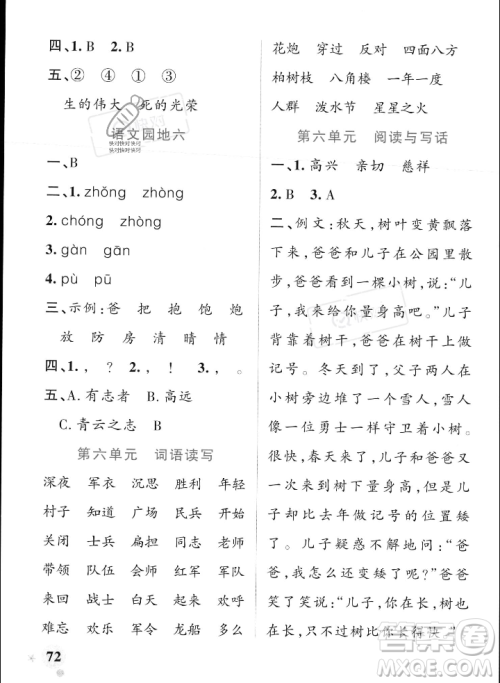 四、1. B　2. B
五、②　④　①　③
生的伟大　死的光荣
语文园地六
快对快对快对
快对快对快对
一、B
二、1. zhǒng　zhòng
2. chóng　zhòng
3. gàn　gān
4. pù　pū
三、示例：爸　把　抱　饱　炮
放　防　房　清　晴　情
四、1. ，　？　2. ，　！　3. ，　。
五、A. 有志者　B. 高远
C. 青云之志　B
第六单元　词语读写
深夜　军衣　沉思　胜利　年轻
村子　知道　广场　民兵　开始
关闭　士兵　扁担　同志　老师
带领　队伍　会师　红军　军队
来回　战士　白天　起来　欢呼
难忘　欢乐　军令　龙船　多么
72
花炮　穿过　反对　四面八方
柏树枝　八角楼　一年一度
人群　泼水节　星星之火
第六单元　阅读与写话
一、1. 高兴　亲切　慈祥
2. B　3. A
二、例文：秋天，树叶变黄飘落
下来，爸爸和儿子在公园里散
步，爸爸看到一棵小树，说：“儿
子，我来给你量身高吧。”儿子
背靠着树干，爸爸在树干上做
记号。冬天来了，父子两人在
小树旁边堆雪人，胖嘟嘟的雪
人好像一样在守卫着小树。
很快，春天到了，儿子和爸爸又
来到小树边，儿子的个子长高
了，但是却比做记号的位置矮
了。儿子疑惑不解地问：“爸
爸，我怎么还变矮了呢？”爸爸
笑了笑，说：“儿子，你在长，树也
在长，只不过树比你长得快。”
答案圈
MXQE.COM